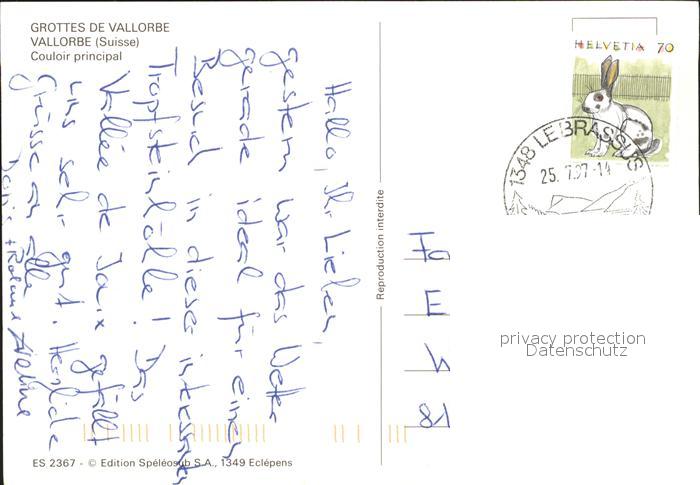 GROTTES DE VALLORBE
VALLORBE (Suisse)
Couloir principal
Hallo, Ihr Lieben,
gestern war das Wetter
gerade ideal für einen
Besuch in dieser interessanten
Tropfsteinhölle! Das
Vallée de Joux gefällt
uns sehr gut. Herzliche
Grüsse an alle
+ Roland
Reproduction interdite
HELVETIA 70
1348 LE BRASSUS
25. 7.97-14
Fa
E
81
privacy protection
Datenschutz
ES 2367 - © Edition Spéléosub S.A., 1349 Eclépens